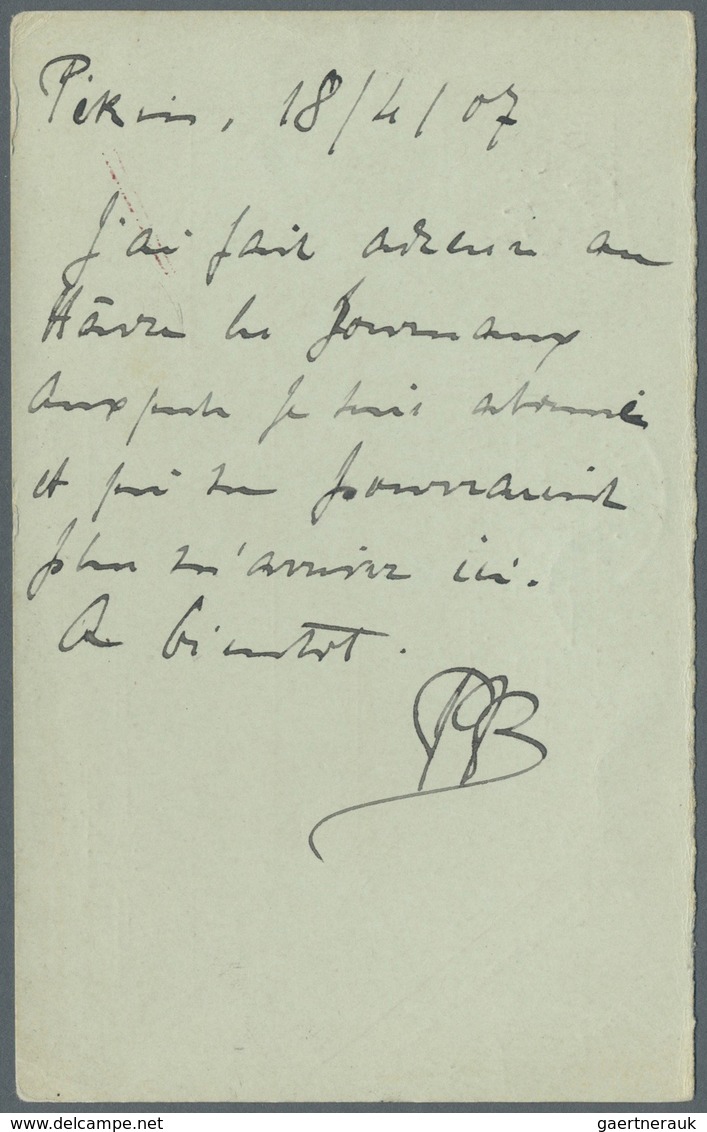 Pékin, 18/4/07
J'ai fait adresser au
Hâvre les Journaux
auxquels je suis abonné
et qui ne pourraient
plus m'arriver ici.
A bientôt.
PB
gaertnerauk